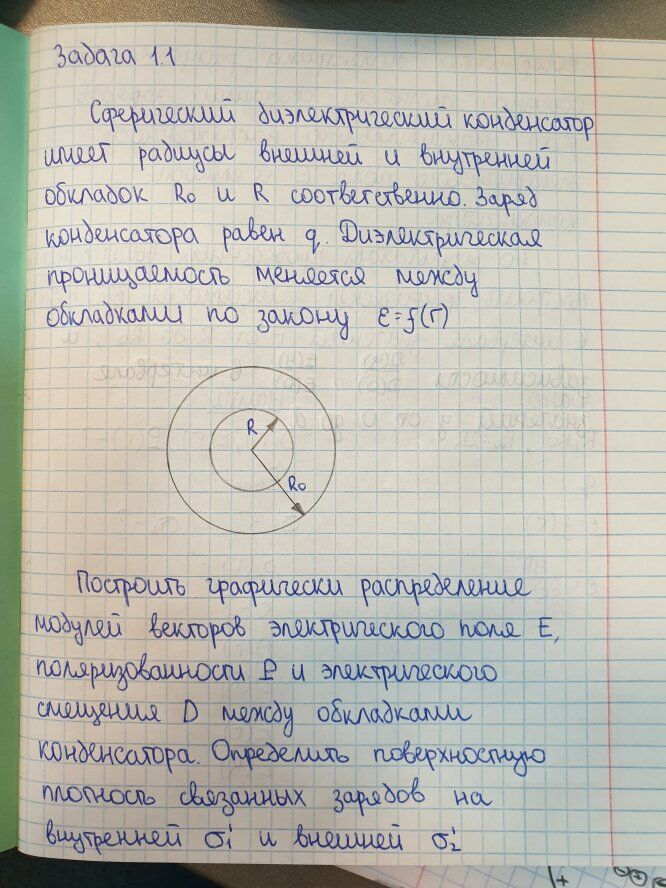 Задача 1.1
Сферический диэлектрический конденсатор
имеет радиусы внешней и внутренней
обкладок R₀ и R соответственно. Заряд
конденсатора равен q. Диэлектрическая
проницаемость меняется между
обкладками по закону ε=f(r)
R
R₀
Построить графически распределение
модулей векторов электрического поля E,
поляризованности P и электрического
смещения D между обкладками
конденсатора. Определить поверхностную
плотность связанных зарядов на
внутренней σ₁' и внешней σ₂'